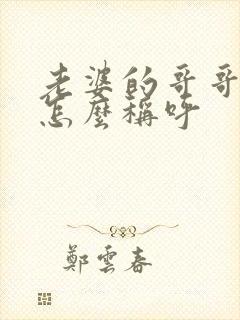 老婆的哥哥
怎麼稱呼
鄭雲春